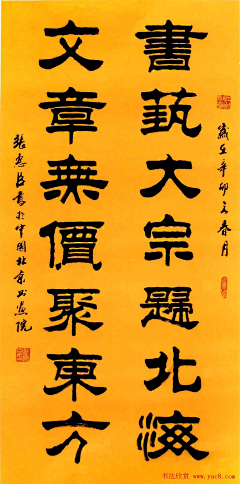 歲在辛卯之春月
書蓺大宗歸北海
文章無價聚東方
張惠臣書於中國北京书畫院
书法欣赏
www.yac8.com